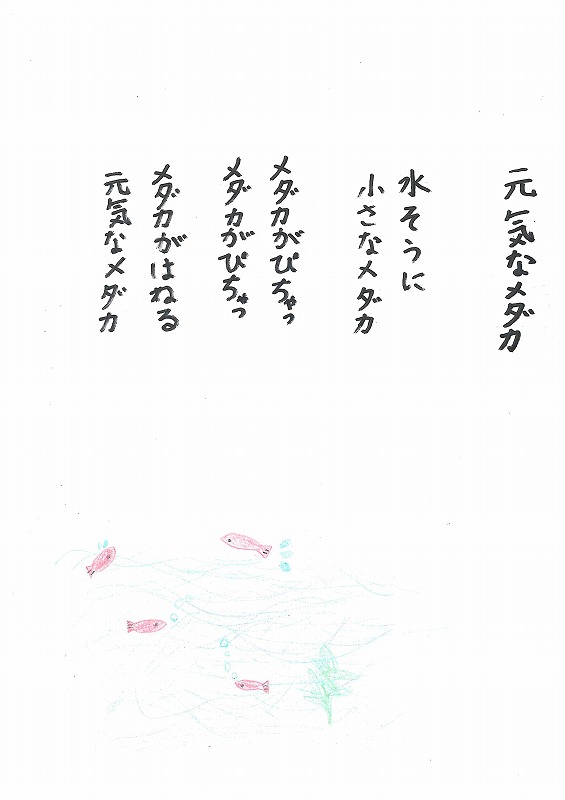 元気なメダカ
水そうに
小さなメダカ
メダカがぴちゃっ
メダカがぴちゃっ
メダカがはねる
元気なメダカ